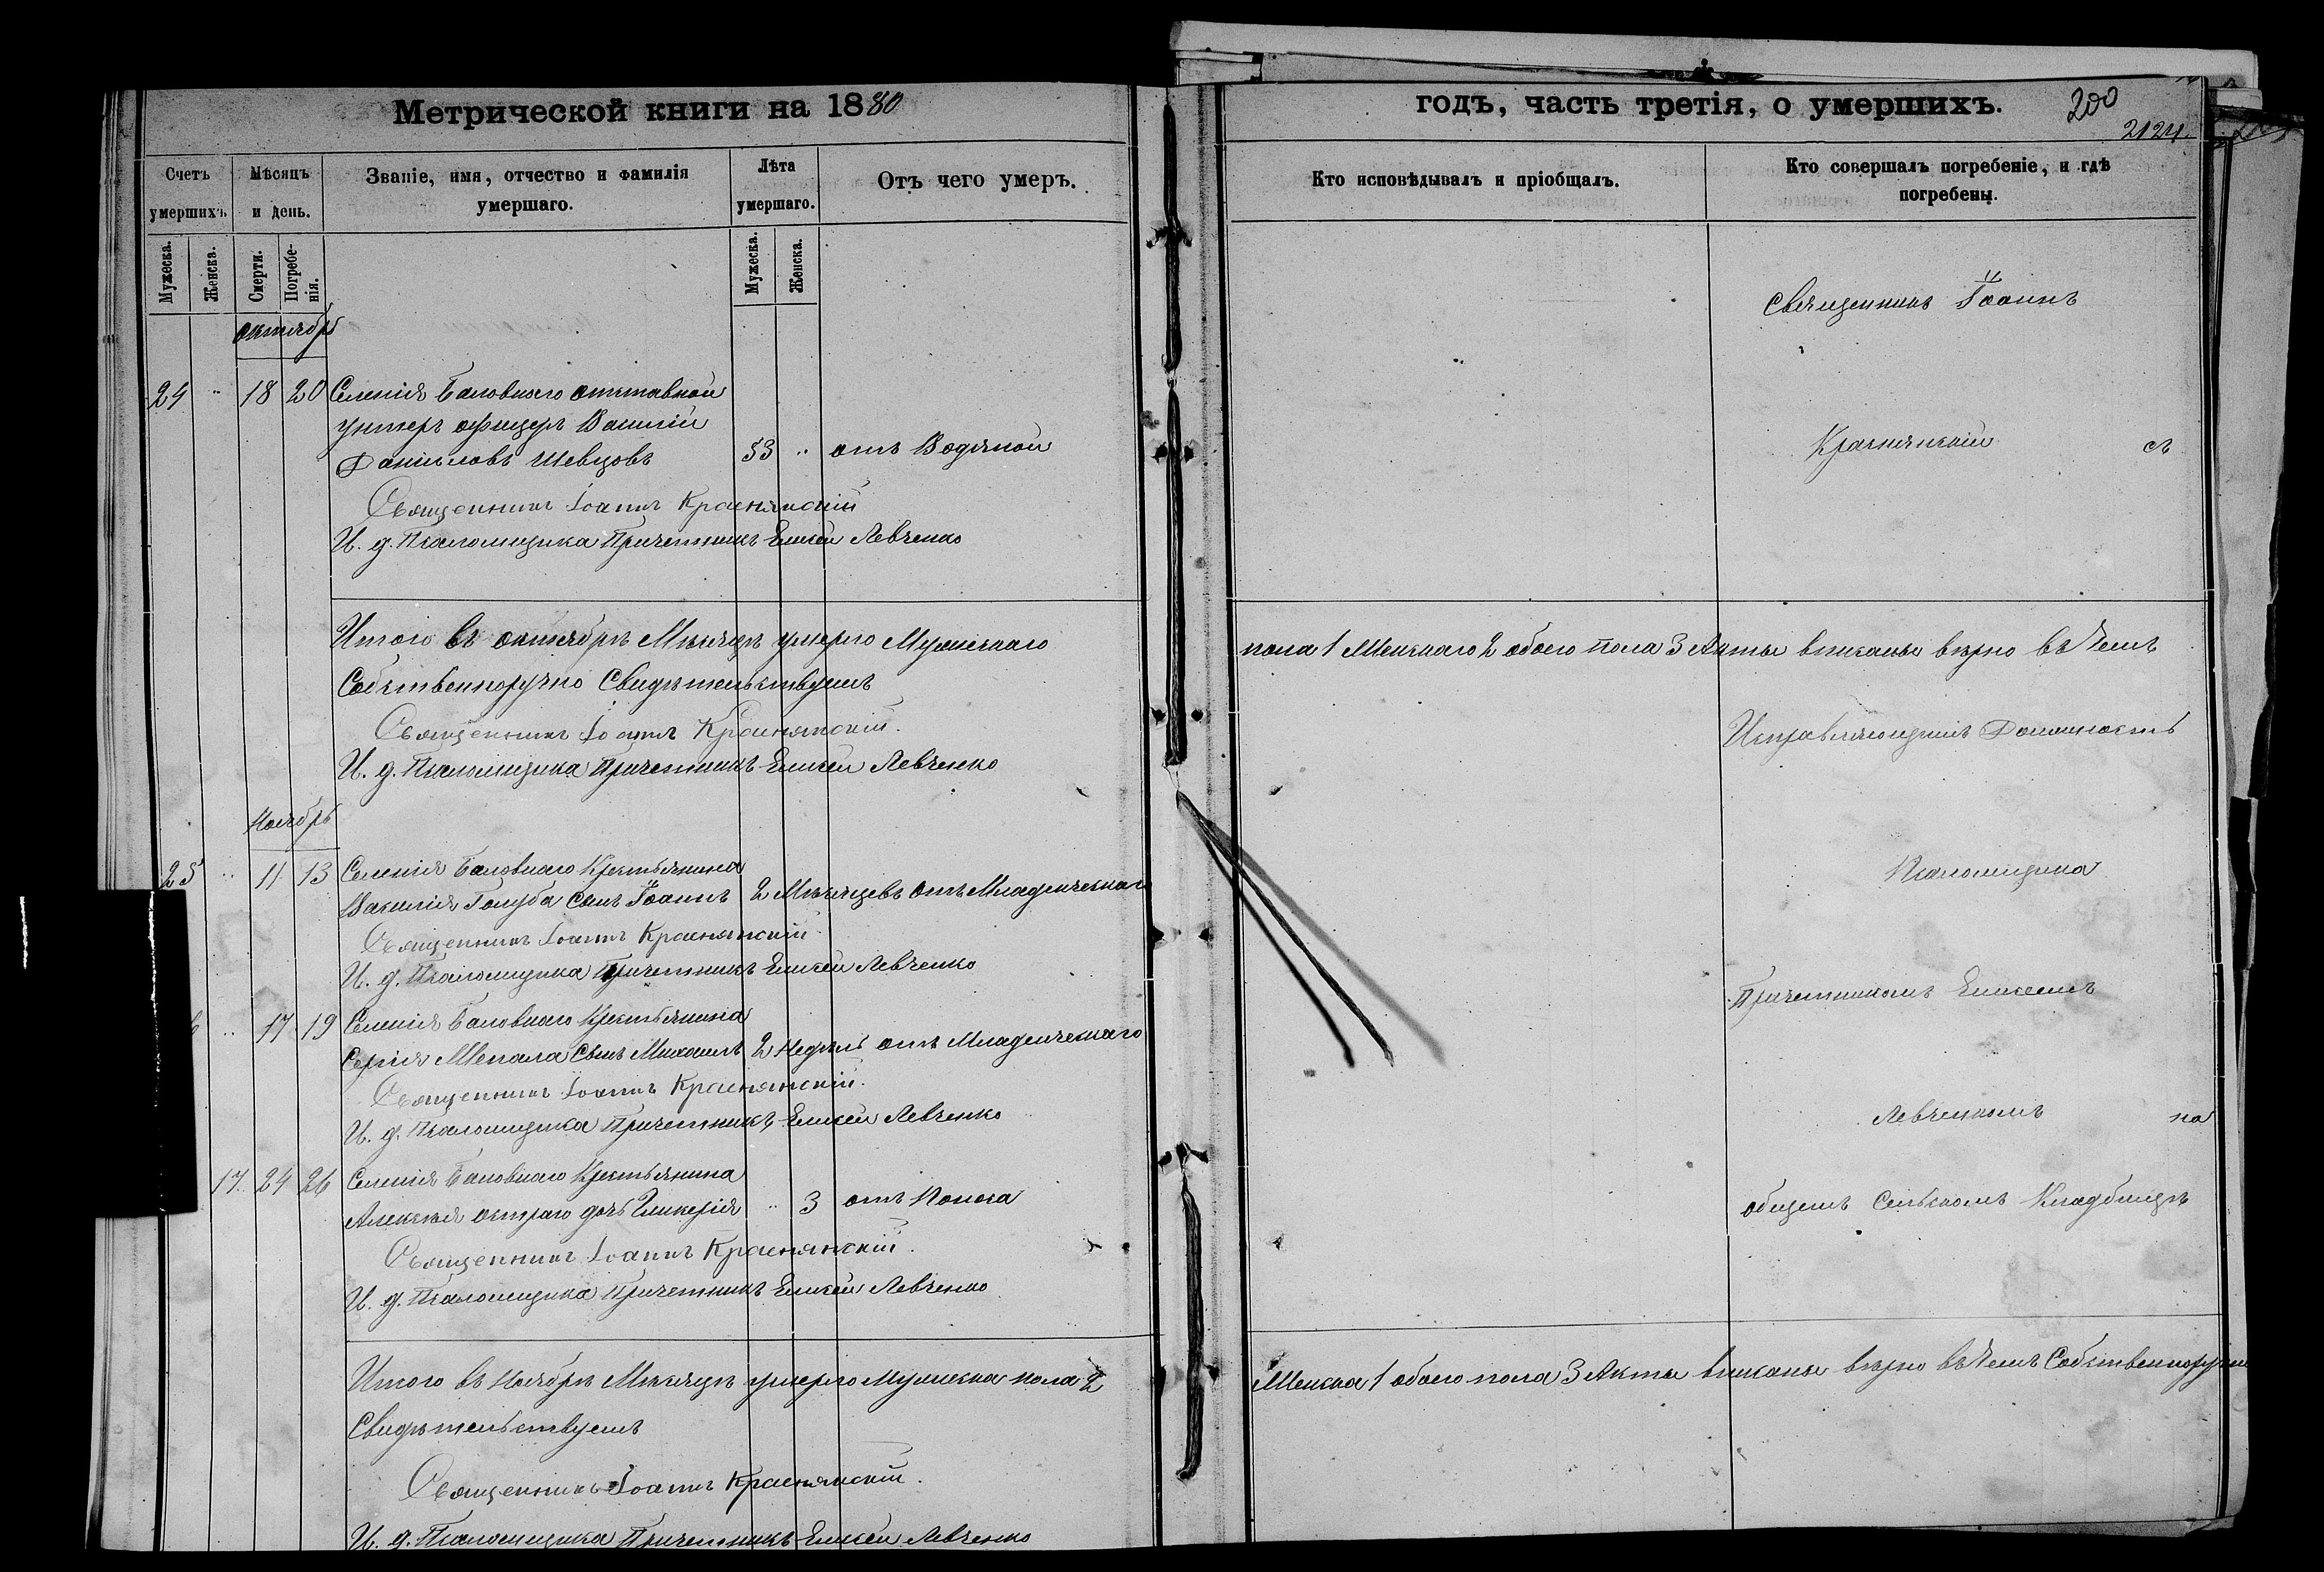 Метрической книги на 1880
годъ, часть третія, о умершихъ.
200
2124.
Счетъ умершихъ.
Мѣсяцъ и день.
Званіе, имя, отчество и фамилія умершаго.
Лѣта умершаго.
Отъ чего умеръ.
Кто исповѣдывалъ и пріобщалъ.
Кто совершалъ погребеніе, и гдѣ погребены.
Мужеска.
Женска.
Смерти.
Погребе-
нія.
Мужеска.
Женска.
октябрь
24 " 18 20 Селенія Баловнаго отставной
унтеръ офицеръ Василій
Даніиловъ Шевцовъ 53 " отъ Водяной
Священникъ Іоаннъ Краснянскій
И. д. Псаломщика Причетникъ Елисей Левченко
Итого въ октябрѣ Мѣсяцѣ умерло Мужескаго
Собственноручно Свидѣтельствуемъ
Священникъ Іоаннъ Краснянскій.
И. д. Псаломщика Причетникъ Елисей Левченко
Ноябрь
25 " 11 13 Селенія Баловнаго Крестьянина
Василія Голуба сынъ Іоаннъ 2 Мѣсяцевъ отъ Младенческаго
Священникъ Іоаннъ Краснянскій
И. д. Псаломщика Причетникъ Елисей Левченко
" 17 19 Селенія Баловнаго Крестьянина
Сергія Шепала сынъ Михаилъ 2 Недѣль отъ Младенческаго
Священникъ Іоаннъ Краснянскій.
И. д. Псаломщика Причетникъ Елисей Левченко
17. 24 26 Селенія Баловнаго Крестьянина
Алексія остраго дочь Гликерія " 3 отъ Поноса
Священникъ Іоаннъ Краснянскій.
И. д. Псаломщика Причетникъ Елисей Левченко
Итого въ Ноябрѣ Мѣсяцѣ умерло мужеска пола 2
Свидѣтельствуемъ
Священникъ Іоаннъ Краснянскій.
И. д. Псаломщика Причетникъ Елисей Левченко
Священникъ Іоаннъ
Краснянскій съ
пола 1 Женскаго 2 обоего пола 3 Акты вписаны вѣрно въ чемъ
Исправляющимъ Должность
Псаломщика
Причетникомъ Елисеемъ
Левченкомъ на
общемъ Сельскомъ Кладбищѣ
Женска 1 обоего пола 3 Акты вписаны вѣрно въ чемъ Собственноручно